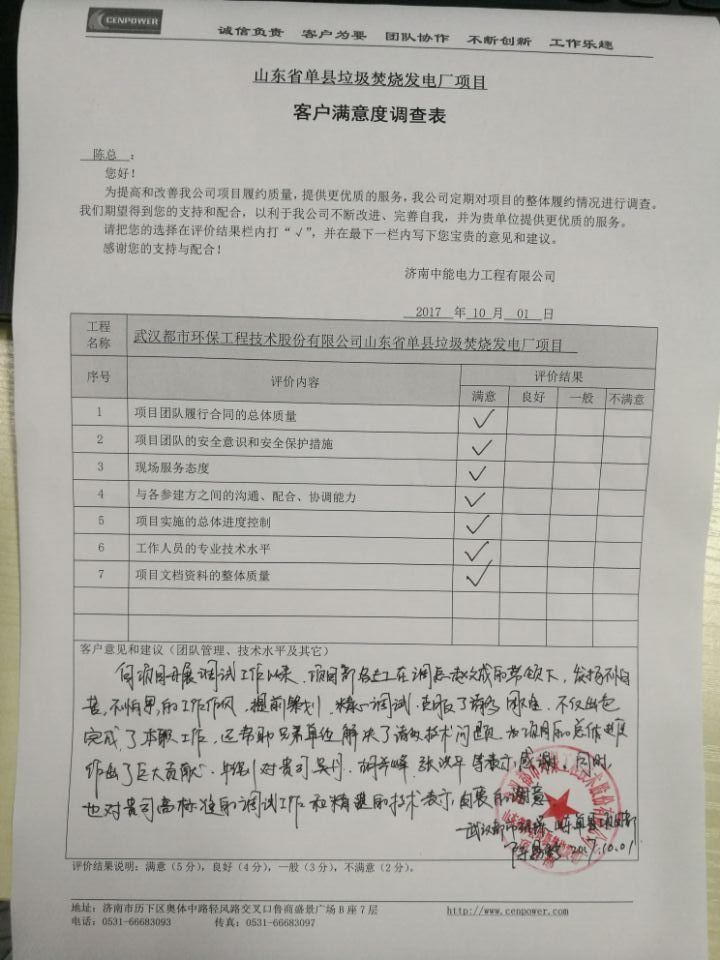 CENPOWER
诚信负责 客户为要 团队协作 不断创新 工作乐趣
山东省单县垃圾焚烧发电厂项目
客户满意度调查表
陈总：
您好！
为提高和改善我公司项目履约质量，提供更优质的服务，我公司定期对项目的整体履约情况进行调查。
我们期望得到您的支持和配合，以利于我公司不断改进、完善自我，并为贵单位提供更优质的服务。
请把您的选择在评价结果栏内打“√”，并在最下一栏内写下您宝贵的意见和建议。
感谢您的支持与配合！
济南中能电力工程有限公司
2017 年 10 月 01 日
工程名称 武汉都市环保工程技术股份有限公司山东省单县垃圾焚烧发电厂项目
序号 评价内容 评价结果
满意 良好 一般 不满意
1 项目团队履行合同的总体质量 ✓
2 项目团队的安全意识和安全保护措施 ✓
3 现场服务态度 ✓
4 与各参建方之间的沟通、配合、协调能力 ✓
5 项目实施的总体进度控制 ✓
6 工作人员的专业技术水平 ✓
7 项目文档资料的整体质量 ✓
客户意见和建议（团队管理、技术水平及其它）
自项目开展调试工作以来，项目部各员工在调总赵文成的带领下，发扬不怕
苦，不怕累，的工作作风，提前策划，精心调试，克服了诸多困难，不仅出色
完成了本职工作，还帮助兄弟单位解决了诸多技术问题，为项目的总体进度
作出了巨大贡献，特别对贵司吴丹、胡芳峰、张洪平等表示感谢，同时，
也对贵司高标准的调试工作和精湛的技术表示由衷的谢意
武汉都市环保 山东单县项目部
2017.10.01
评价结果说明：满意（5分），良好（4分），一般（3分），不满意（2分）。
地址：济南市历下区奥体中路轻风路交叉口鲁商盛景广场B座7层 http://www.cenpower.com
电话：0531-66683093 传真：0531-66683097